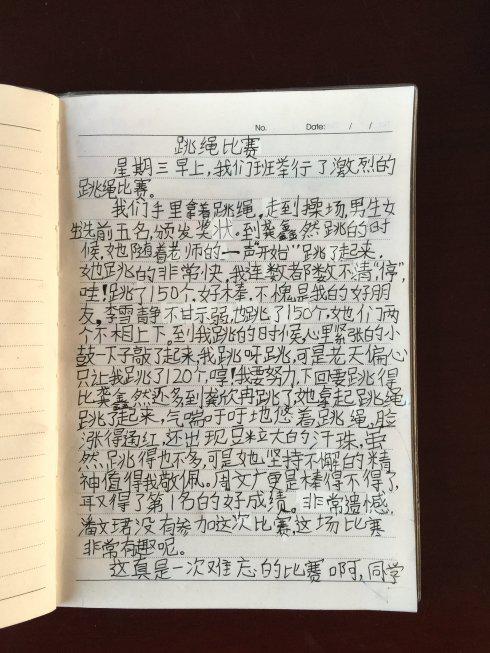 No. Date: / /
跳绳比赛
星期三早上,我们班举行了激烈的
跳绳比赛。
我们手里拿着跳绳,走到操场,男生女
生选前五名,颁发奖状。到龚鑫然跳的时
候,她随着老师的一声“开始”跳了起来,
她跳的非常快,我连数都数不清,“停”,
哇!跳了150个,好棒,不愧是我的好朋
友。李雪静不甘示弱,也跳了150个,她们两
个不相上下。到我跳的时候,心里紧张的小
鼓一下子敲了起来,我跳呀跳,可是老天偏心
只让我跳了120个,哼!我要努力,下回要跳得
比龚鑫然还多到龚欣冉跳了她拿起跳绳
跳了起来,气喘吁吁地悠着跳绳。脸
涨得通红,还出现豆粒大的汗珠,虽
然,跳得也不多,可是她,坚持不懈的精
神值得我敬佩。周文广更是棒得不得了,
取得了第1名的好成绩。非常遗憾,
潘文珺没有参加这次比赛,这场比赛
非常有趣呢。
这真是一次难忘的比赛啊,同学